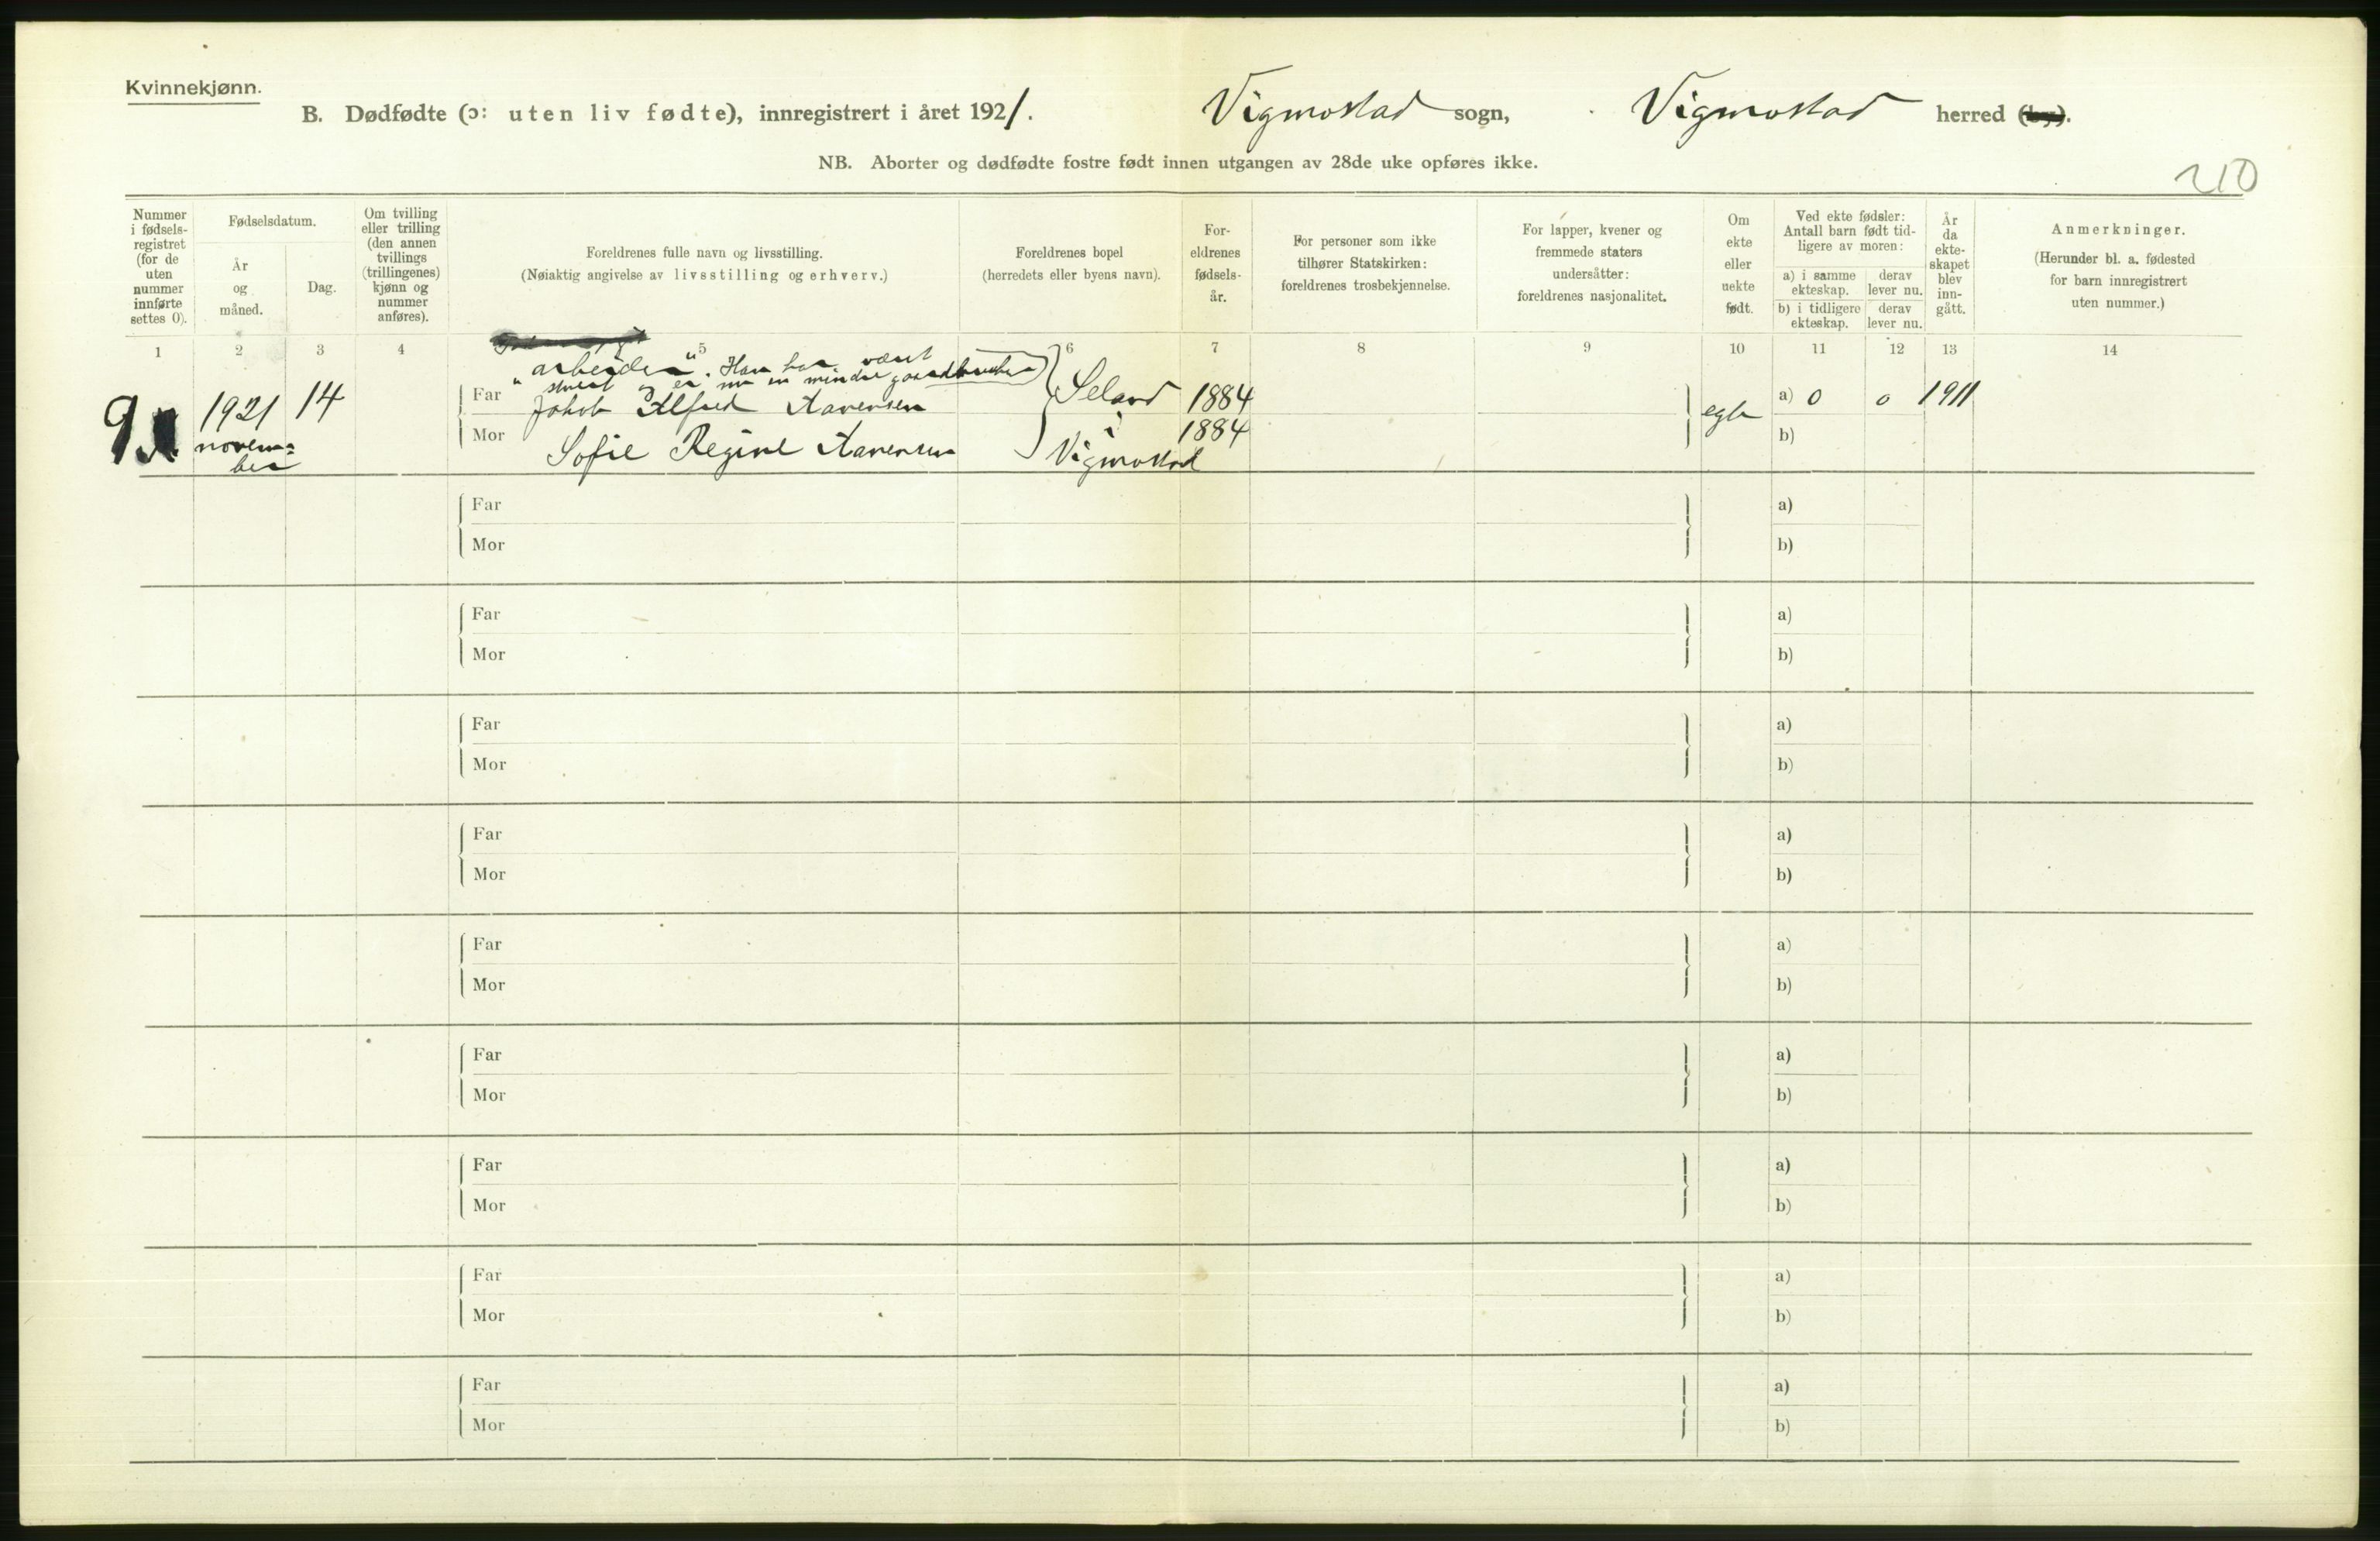 Kvinnekjønn.
B. Dødfødte (ɔ: uten liv fødte), innregistrert i året 1921. Vigmostad sogn, Vigmostad herred (by).
NB. Aborter og dødfødte fostre født innen utgangen av 28de uke opføres ikke.
210
Nummer
i fødsels-
registret
(for de
uten
nummer
innførte
settes 0).
Fødselsdatum.
År
og
måned.
Dag.
Om tvilling
eller trilling
(den annen
tvillings
(trillingenes)
kjønn og
nummer
anføres).
Foreldrenes fulle navn og livsstilling.
(Nøiaktig angivelse av livsstilling og erhverv.)
Foreldrenes bopel
(herredets eller byens navn).
For-
eldrenes
fødsels-
år.
For personer som ikke
tilhører Statskirken:
foreldrenes trosbekjennelse.
For lapper, kvener og
fremmede staters
undersåtter:
foreldrenes nasjonalitet.
Om
ekte
eller
uekte
født.
Ved ekte fødsler:
Antall barn født tid-
ligere av moren:
a) i samme
ekteskap.
derav
lever nu.
b) i tidligere
ekteskap.
derav
lever nu.
År
da
ekte-
skapet
blev
inn-
gått.
Anmerkninger.
(Herunder bl. a. fødested
for barn innregistrert
uten nummer.)
1 2 3 4 5 6 7 8 9 10 11 12 13 14
9
1921
novem=
ber
14
"arbeider". Han har været
og er nu en mindre gaardbruker
Far Jakob Alfred Aanensen
Mor Sofie Regine Aanensen
Seland
i
Vigmostad
1884
1884
egte
a) 0 0 1911
b)
Far a)
Mor b)
Far a)
Mor b)
Far a)
Mor b)
Far a)
Mor b)
Far a)
Mor b)
Far a)
Mor b)
Far a)
Mor b)
Far a)
Mor b)
Far a)
Mor b)